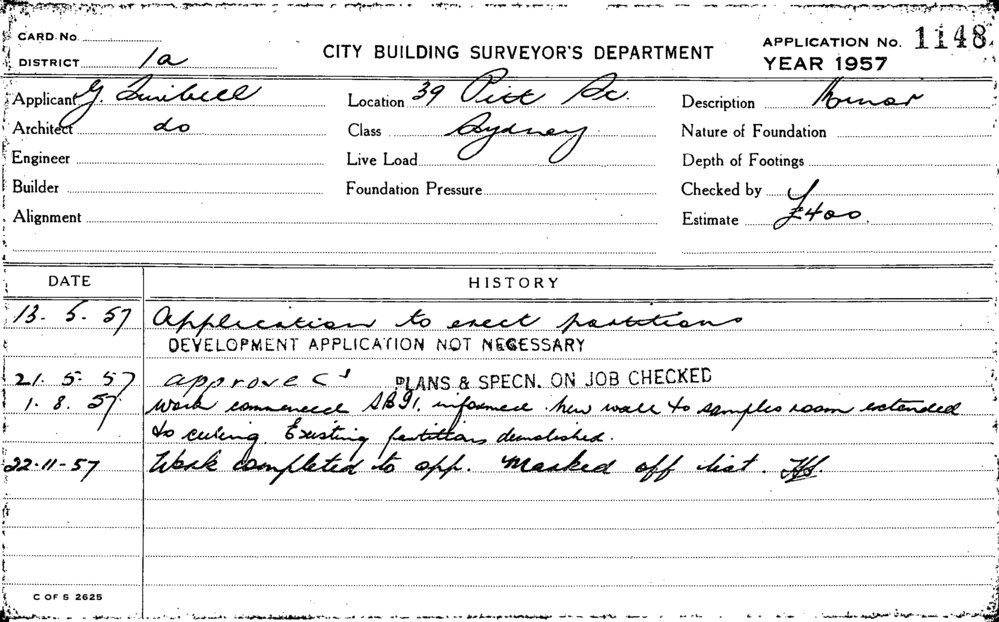 CARD No.
DISTRICT 1a
CITY BUILDING SURVEYOR'S DEPARTMENT
APPLICATION No. 1148
YEAR 1957
Applicant G.
Location 39 Pitt St.
Description Minor
Architect do
Class Sydney
Nature of Foundation
Engineer
Live Load
Depth of Footings
Builder
Foundation Pressure
Checked by
Alignment
Estimate £400.
DATE HISTORY
13. 5. 57 Application to erect partitions
DEVELOPMENT APPLICATION NOT NECESSARY
21. 5. 57 approved PLANS & SPECN. ON JOB CHECKED
1. 8. 57 Work commenced informed new wall to samples room extended
to ceiling. Existing partitions demolished.
22-11-57 Work completed to app. Marked off list.
C OF S 2625